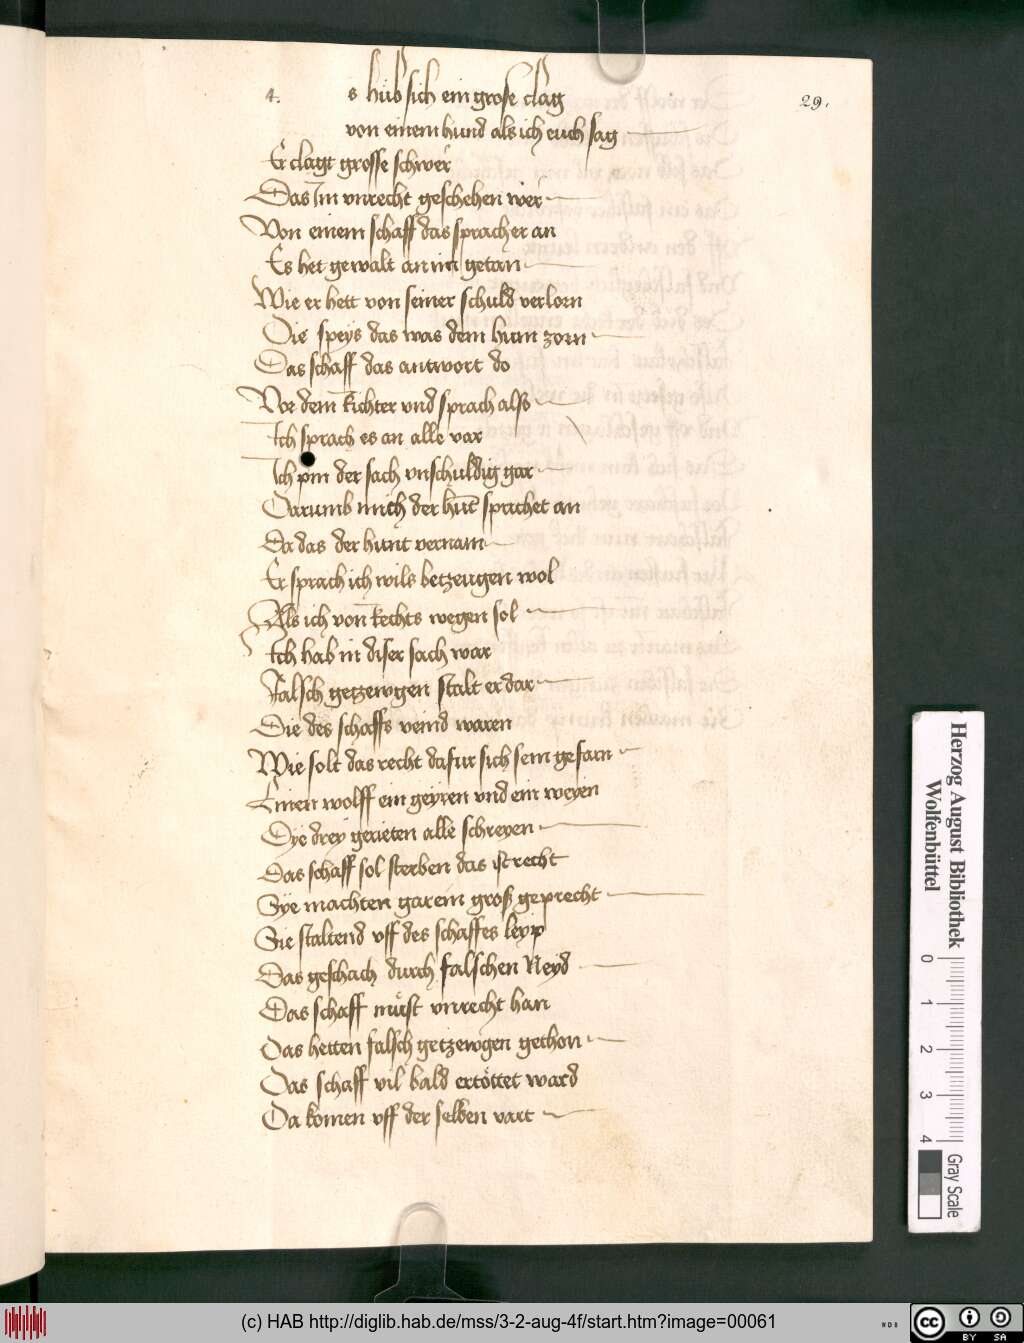 4.
29.
s hub sich ein grose clag
von einem hund als ich euch sag
Er clagt grosse schwer
Das Im vnrecht geschehen wer
Von einem schaff das sprach er an
Es het gewalt an im getan
Wie er hett von seiner schuld verlorn
Die speys das was dem hunn zorn
Das schaff das antwort do
Vor dem Richter vnd sprach also
Ich sprach es an alle var
Ich pin der sach vnschuldig gar
Darumb mich der hunt sprichet an
Da das der hunt vernam
Er sprach ich wils betzeugen wol
Als ich von Rechts wegen sol
Ich hab in diser sach war
Falsch getzewgen stalt er dar
Die des schaffs veind waren
Wie solt das recht dafur sich sein gefarn
Einen wolff ein geyren vnd ein weyen
Dye drey gerieten alle schreyen
Das schaff sol sterben das ist recht
Sye machten gar ein groß geprecht
Sie staltend vff des schaffes leyp
Das geschach durch falschen Neyd
Das schaff must vnrecht han
Das hetten falsch getzewgen gethon
Das schaff vil bald ertöttet ward
Da komen vff der selben vart
Herzog August Bibliothek
Wolfenbüttel
0 1 2 3 4
Gray Scale
(c) HAB http://diglib.hab.de/mss/3-2-aug-4f/start.htm?image=00061
WDB
cc BY SA